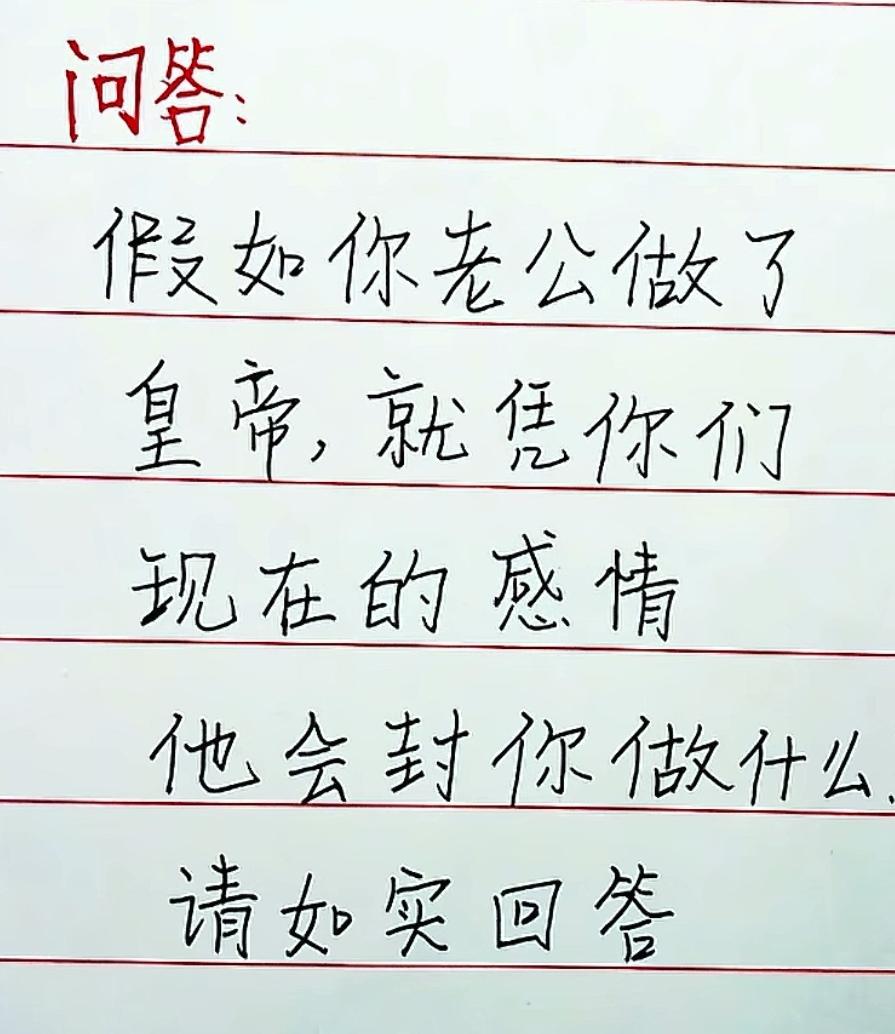 问答:
假如你老公做了
皇帝,就凭你们
现在的感情
他会封你做什么.
请如实回答